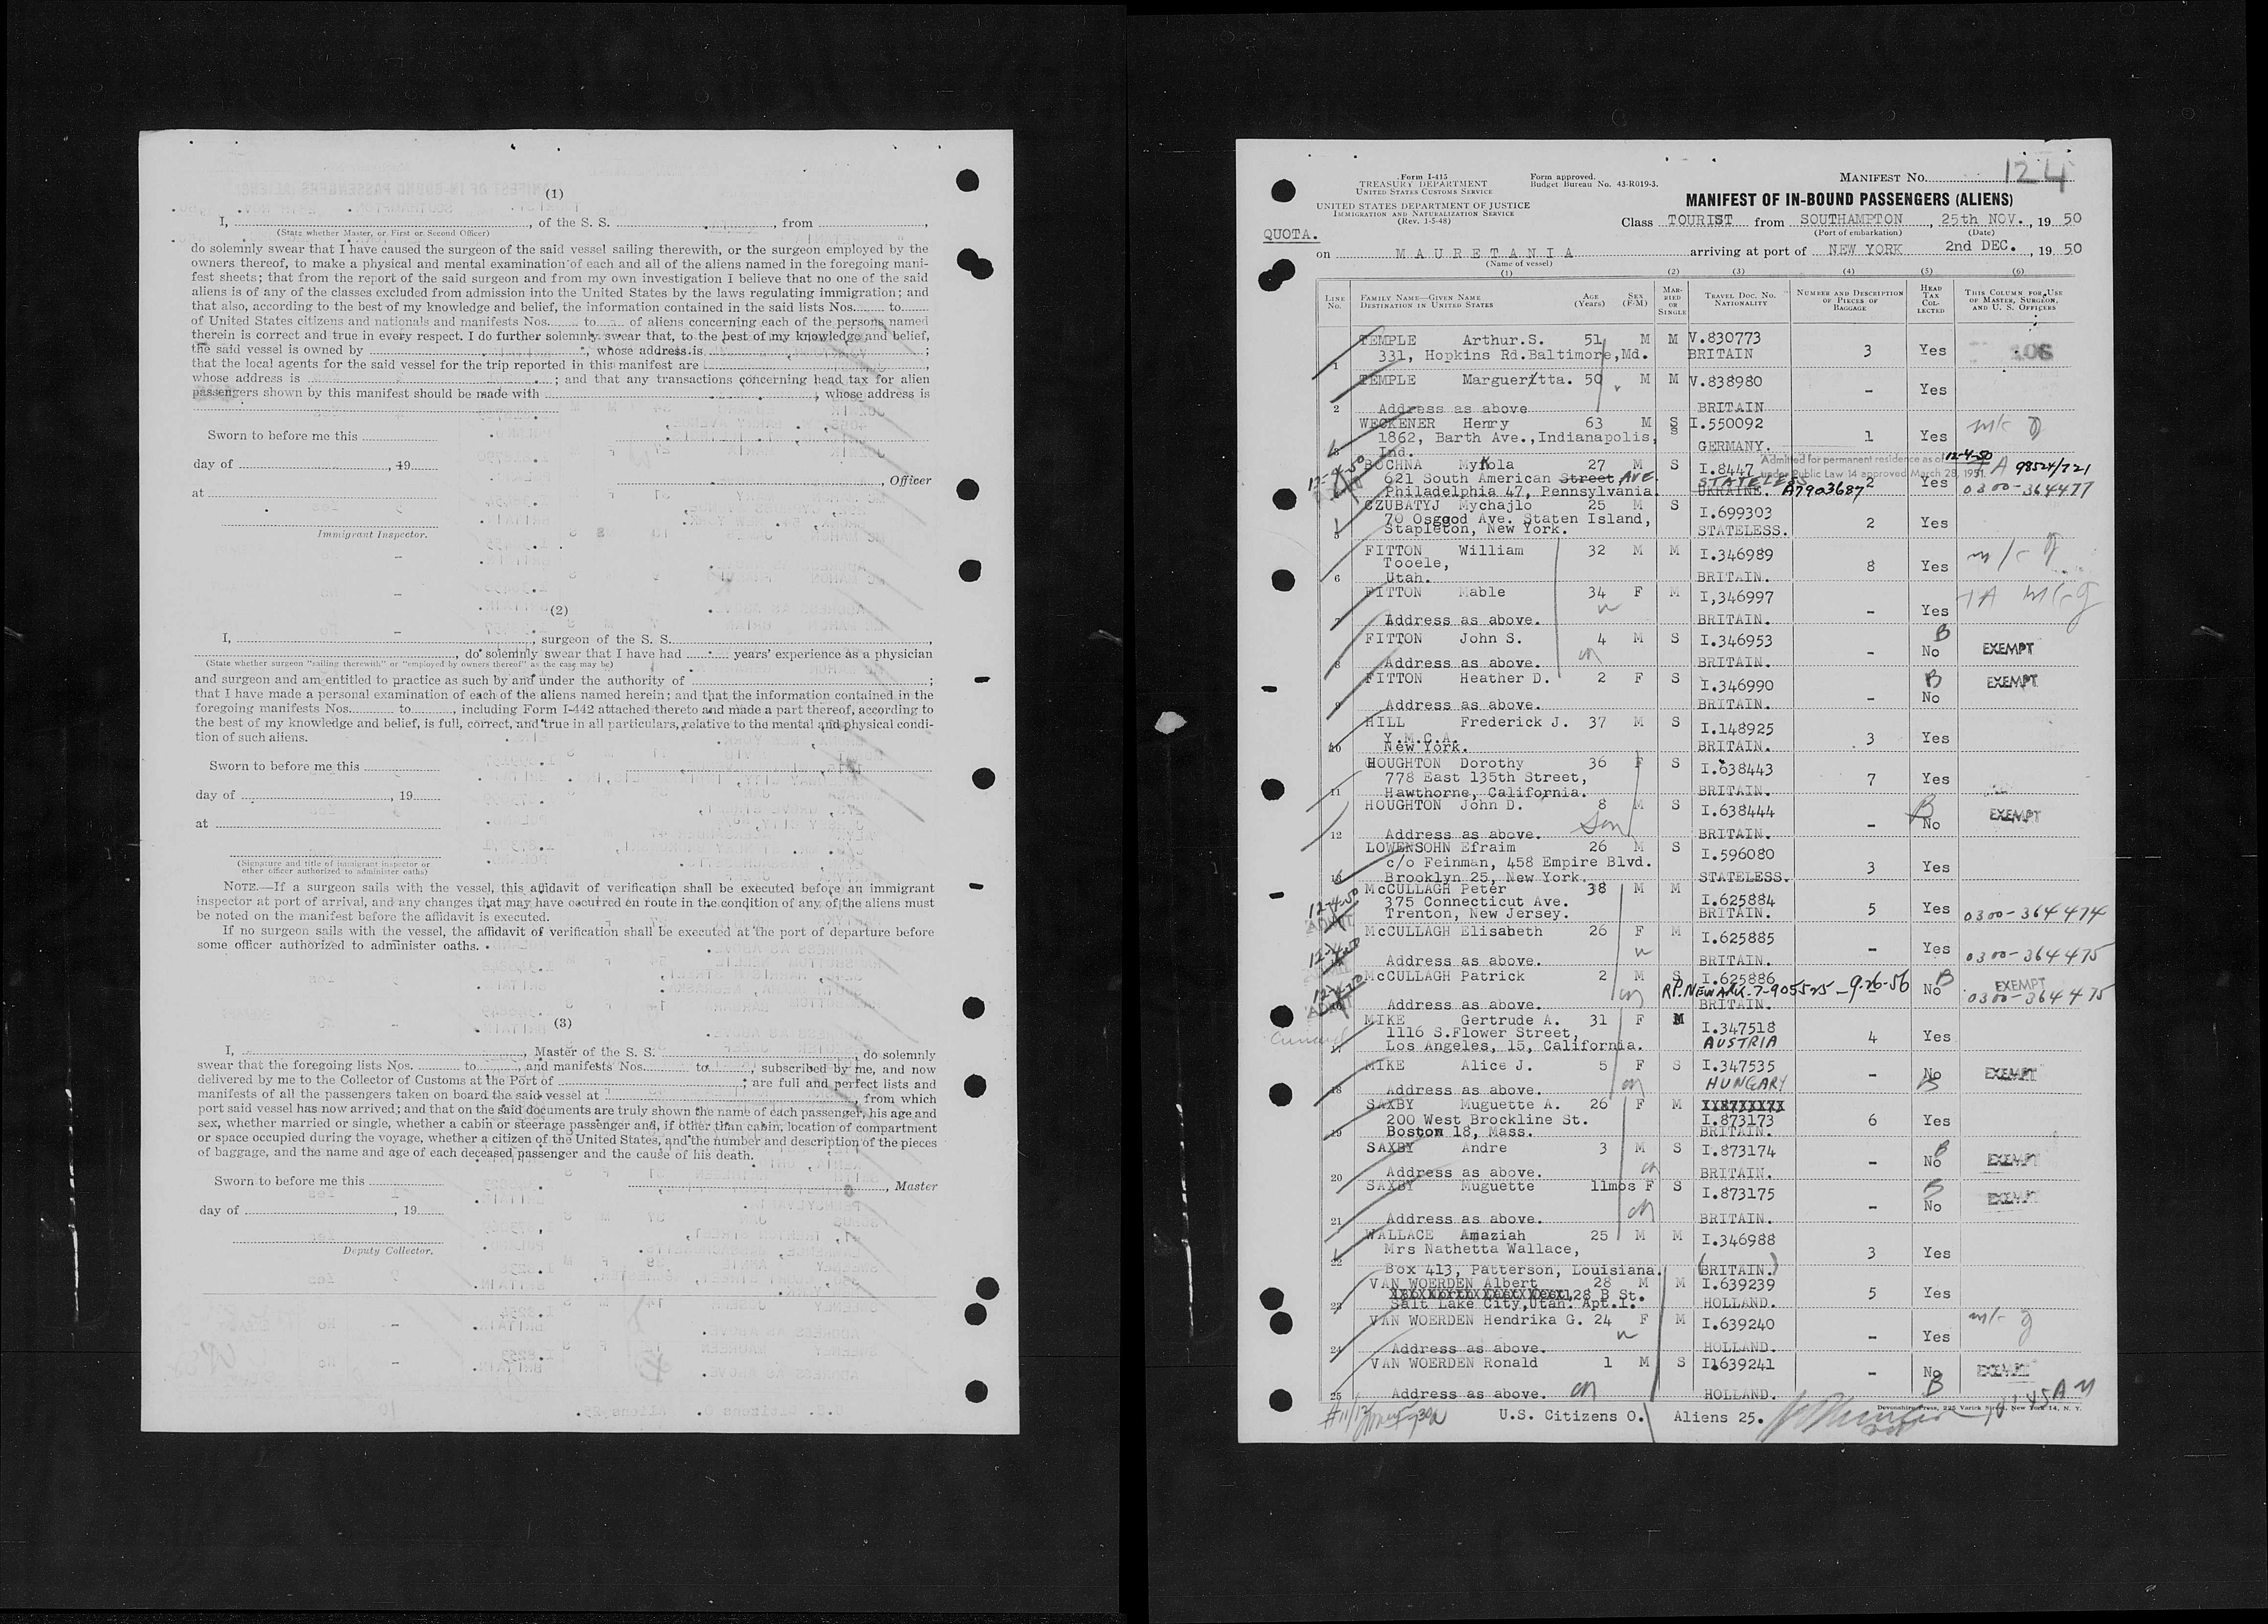 (1)
I, , of the S. S. , from ,
(State whether Master, or First or Second Officer)
do solemnly swear that I have caused the surgeon of the said vessel sailing therewith, or the surgeon employed by the
owners thereof, to make a physical and mental examination of each and all of the aliens named in the foregoing mani-
fest sheets; that from the report of the said surgeon and from my own investigation I believe that no one of the said
aliens is of any of the classes excluded from admission into the United States by the laws regulating immigration; and
that also, according to the best of my knowledge and belief, the information contained in the said lists Nos. to
of United States citizens and nationals and manifests Nos. to of aliens concerning each of the persons named
therein is correct and true in every respect. I do further solemnly swear that, to the best of my knowledge and belief,
the said vessel is owned by , whose address is ;
that the local agents for the said vessel for the trip reported in this manifest are ,
whose address is ; and that any transactions concerning head tax for alien
passengers shown by this manifest should be made with , whose address is
Sworn to before me this
day of , 19
, Officer
at
Immigrant Inspector.
(2)
I, , surgeon of the S. S. ,
, do solemnly swear that I have had years' experience as a physician
(State whether surgeon "sailing therewith" or "employed by owners thereof" as the case may be)
and surgeon and am entitled to practice as such by and under the authority of ;
that I have made a personal examination of each of the aliens named herein; and that the information contained in the
foregoing manifests Nos. to , including Form I-442 attached thereto and made a part thereof, according to
the best of my knowledge and belief, is full, correct, and true in all particulars, relative to the mental and physical condi-
tion of such aliens.
Sworn to before me this
day of , 19
at
(Signature and title of immigrant inspector or
other officer authorized to administer oaths)
NOTE.—If a surgeon sails with the vessel, this affidavit of verification shall be executed before an immigrant
inspector at port of arrival, and any changes that may have occurred en route in the condition of any of the aliens must
be noted on the manifest before the affidavit is executed.
If no surgeon sails with the vessel, the affidavit of verification shall be executed at the port of departure before
some officer authorized to administer oaths.
(3)
I, , Master of the S. S. , do solemnly
swear that the foregoing lists Nos. to , and manifests Nos. to , subscribed by me, and now
delivered by me to the Collector of Customs at the Port of ; are full and perfect lists and
manifests of all the passengers taken on board the said vessel at , from which
port said vessel has now arrived; and that on the said documents are truly shown the name of each passenger, his age and
sex, whether married or single, whether a cabin or steerage passenger and, if other than cabin, location of compartment
or space occupied during the voyage, whether a citizen of the United States, and the number and description of the pieces
of baggage, and the name and age of each deceased passenger and the cause of his death.
Sworn to before me this
, Master
day of , 19
Deputy Collector.
Form I-415
TREASURY DEPARTMENT
UNITED STATES CUSTOMS SERVICE
UNITED STATES DEPARTMENT OF JUSTICE
IMMIGRATION AND NATURALIZATION SERVICE
(Rev. 1-5-48)
Form approved.
Budget Bureau No. 43-R019-3.
MANIFEST No. 124
MANIFEST OF IN-BOUND PASSENGERS (ALIENS)
Class TOURIST from SOUTHAMPTON , 25th NOV. , 19 50
(Port of embarkation) (Date)
QUOTA.
on MAURETANIA arriving at port of NEW YORK 2nd DEC. , 19 50
(Name of vessel)
(1) (2) (3) (4) (5) (6)
LINE No. FAMILY NAME—GIVEN NAME DESTINATION IN UNITED STATES AGE (Years) SEX (F-M) MARRIED OR SINGLE TRAVEL DOC. NO. NATIONALITY NUMBER AND DESCRIPTION OF PIECES OF BAGGAGE HEAD TAX COLLECTED THIS COLUMN FOR USE OF MASTER, SURGEON, AND U. S. OFFICERS
TEMPLE Arthur.S. 51 M M V.830773
1 331, Hopkins Rd.Baltimore,Md. BRITAIN 3 Yes 106
TEMPLE Margueritta. 50 M M V.838980 - Yes
2 Address as above BRITAIN
WECKENER Henry 63 M S I.550092
1862, Barth Ave.,Indianapolis, S 1 Yes
3 Ind. GERMANY.
Admitted for permanent residence as of 12-4-50
under Public Law 14 approved March 28, 1951.
BOCHNA Mykola 27 M S I.8447 A 98524/721
12-4-50 621 South American Street AVE STATELESS 2 Yes
4 Philadelphia 47, Pennsylvania. UKRAINE. A7903687 0300-364477
CZUBATYJ Mychajlo 25 M S I.699303
70 Osgood Ave. Staten Island, 2 Yes
5 Stapleton, New York. STATELESS.
FITTON William 32 M M I.346989
Tooele, 8 Yes
6 Utah. BRITAIN.
FITTON Mable 34 F M I,346997
- Yes
7 Address as above. W BRITAIN.
FITTON John S. 4 M S I.346953 B
- No EXEMPT
8 Address as above. BRITAIN.
FITTON Heather D. 2 F S I.346990 B EXEMPT
9 Address as above. BRITAIN. - No
HILL Frederick J. 37 M S I.148925
Y.M.C.A. 3 Yes
10 New York. BRITAIN.
HOUGHTON Dorothy 36 F S I.638443
778 East 135th Street, 7 Yes
11 Hawthorne, California. BRITAIN.
HOUGHTON John D. 8 M S I.638444 B EXEMPT
12 Address as above. Son BRITAIN. - No
LOWENSOHN Efraim 26 M S I.596080
c/o Feinman, 458 Empire Blvd. 3 Yes
13 Brooklyn 25, New York. STATELESS.
McCULLAGH Peter 38 M M I.625884
12-4-50 375 Connecticut Ave. 5 Yes 0300-364474
ADMIT Trenton, New Jersey. BRITAIN.
McCULLAGH Elisabeth 26 F M I.625885
12-4-50 Address as above. W BRITAIN. - Yes 0300-364475
McCULLAGH Patrick 2 M S I.625886 B EXEMPT
12-4-50 RP.NEWARK-7-905525-9-26-56 No 0300-364475
ADMIT Address as above. BRITAIN.
MIKE Gertrude A. 31 F M I.347518
Cunard 1116 S.Flower Street, 4 Yes
17 Los Angeles, 15, California. AUSTRIA
MIKE Alice J. 5 F S I.347535 - No EXEMPT
18 Address as above. HUNGARY B
SAXBY Muguette A. 26 F M
200 West Brockline St. I.873173 6 Yes
19 Boston 18, Mass. BRITAIN.
SAXBY Andre 3 M S I.873174 B
- No EXEMPT
20 Address as above. BRITAIN.
SAXBY Muguette 11mos F S I.873175 B EXEMPT
- No
21 Address as above. BRITAIN.
WALLACE Amaziah 25 M M I.346988
Mrs Nathetta Wallace, 3 Yes
22 Box 413, Patterson, Louisiana. (BRITAIN.)
VAN WOERDEN Albert 28 M M I.639239
128 B St. 5 Yes
23 Salt Lake City,Utah. Apt.1. HOLLAND.
VAN WOERDEN Hendrika G. 24 F M I.639240
- Yes
24 Address as above. W HOLLAND.
VAN WOERDEN Ronald 1 M S I.639241 - No EXEMPT
25 Address as above. HOLLAND. B
U.S. Citizens 0. Aliens 25. 10:45AM
Devonshire Press, 225 Varick Street, New York 14, N. Y.